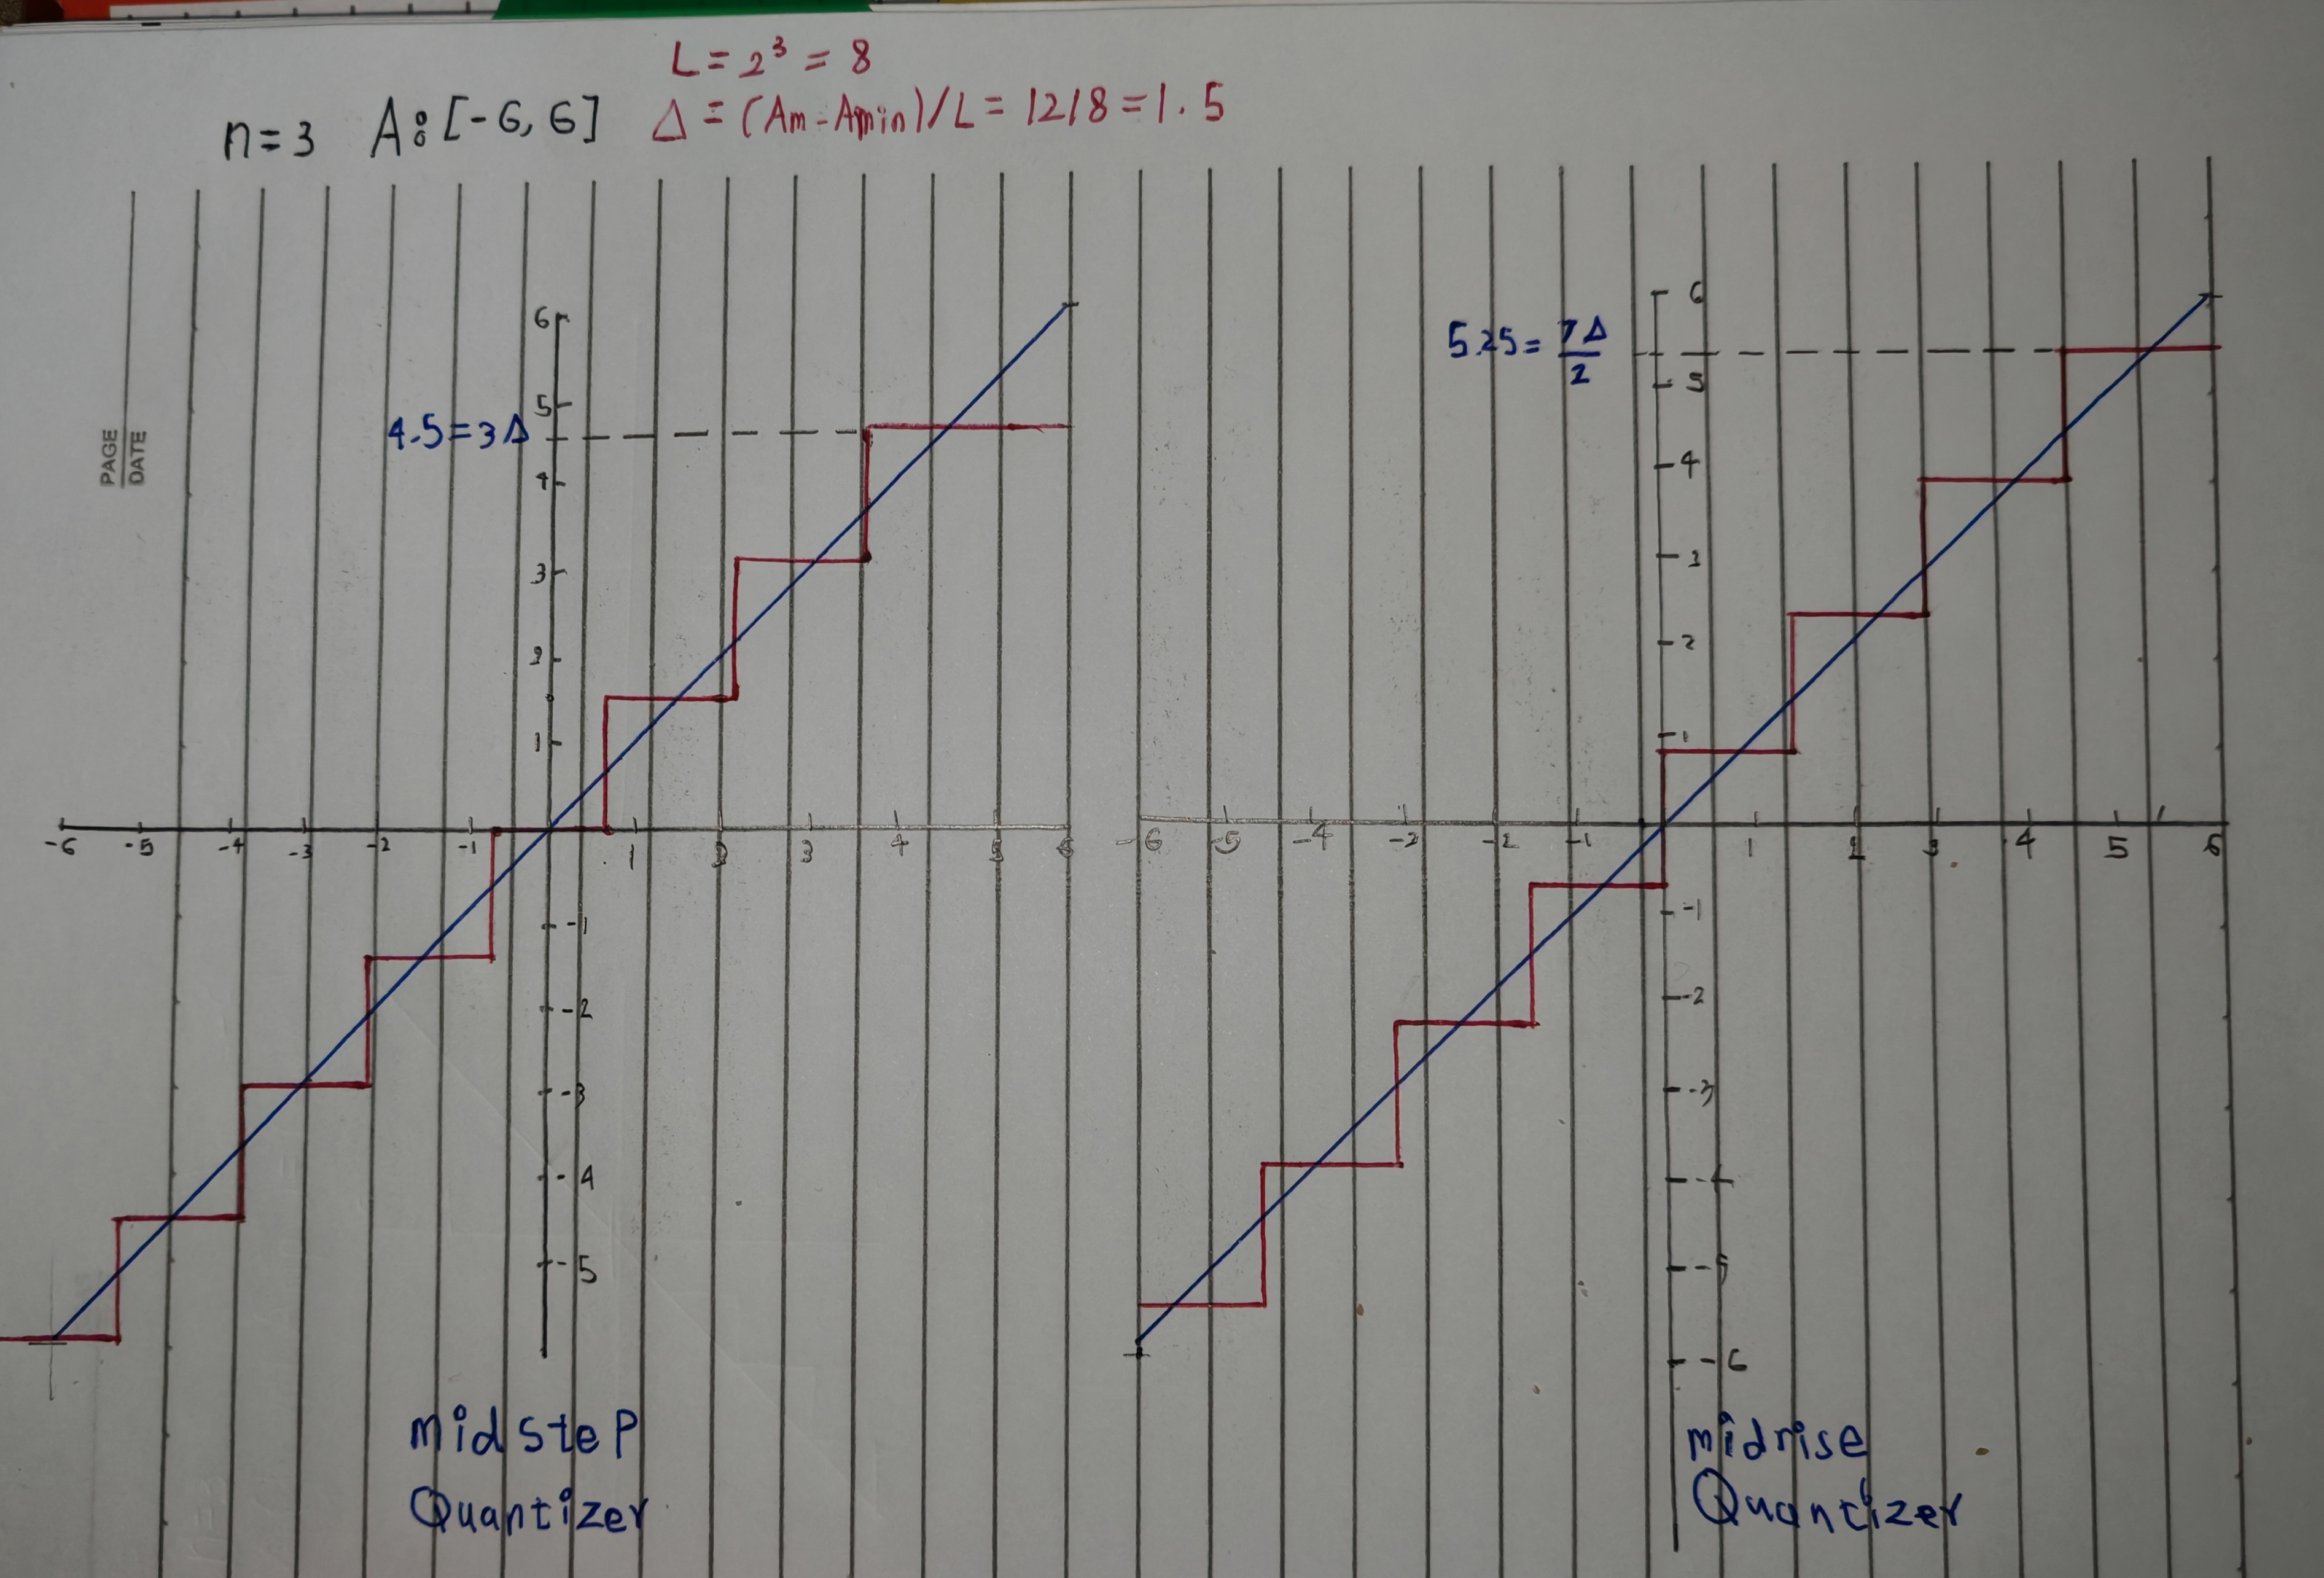 L = 2³ = 8
n=3 A: [-6, 6] Δ = (Am - Amin)/L = 12/8 = 1.5
PAGE
DATE
6
5
4.5 = 3Δ
4
3
2
1
-6 -5 -4 -3 -2 -1 1 2 3 4 5 6
-1
-2
-3
-4
-5
midsteP
Quantizer
6
5.25 = 7Δ/2
5
4
3
2
1
-6 -5 -4 -2 -2 -1 1 2 3 4 5 6
-1
-2
-3
-4
-5
-6
midrise
Quantizer